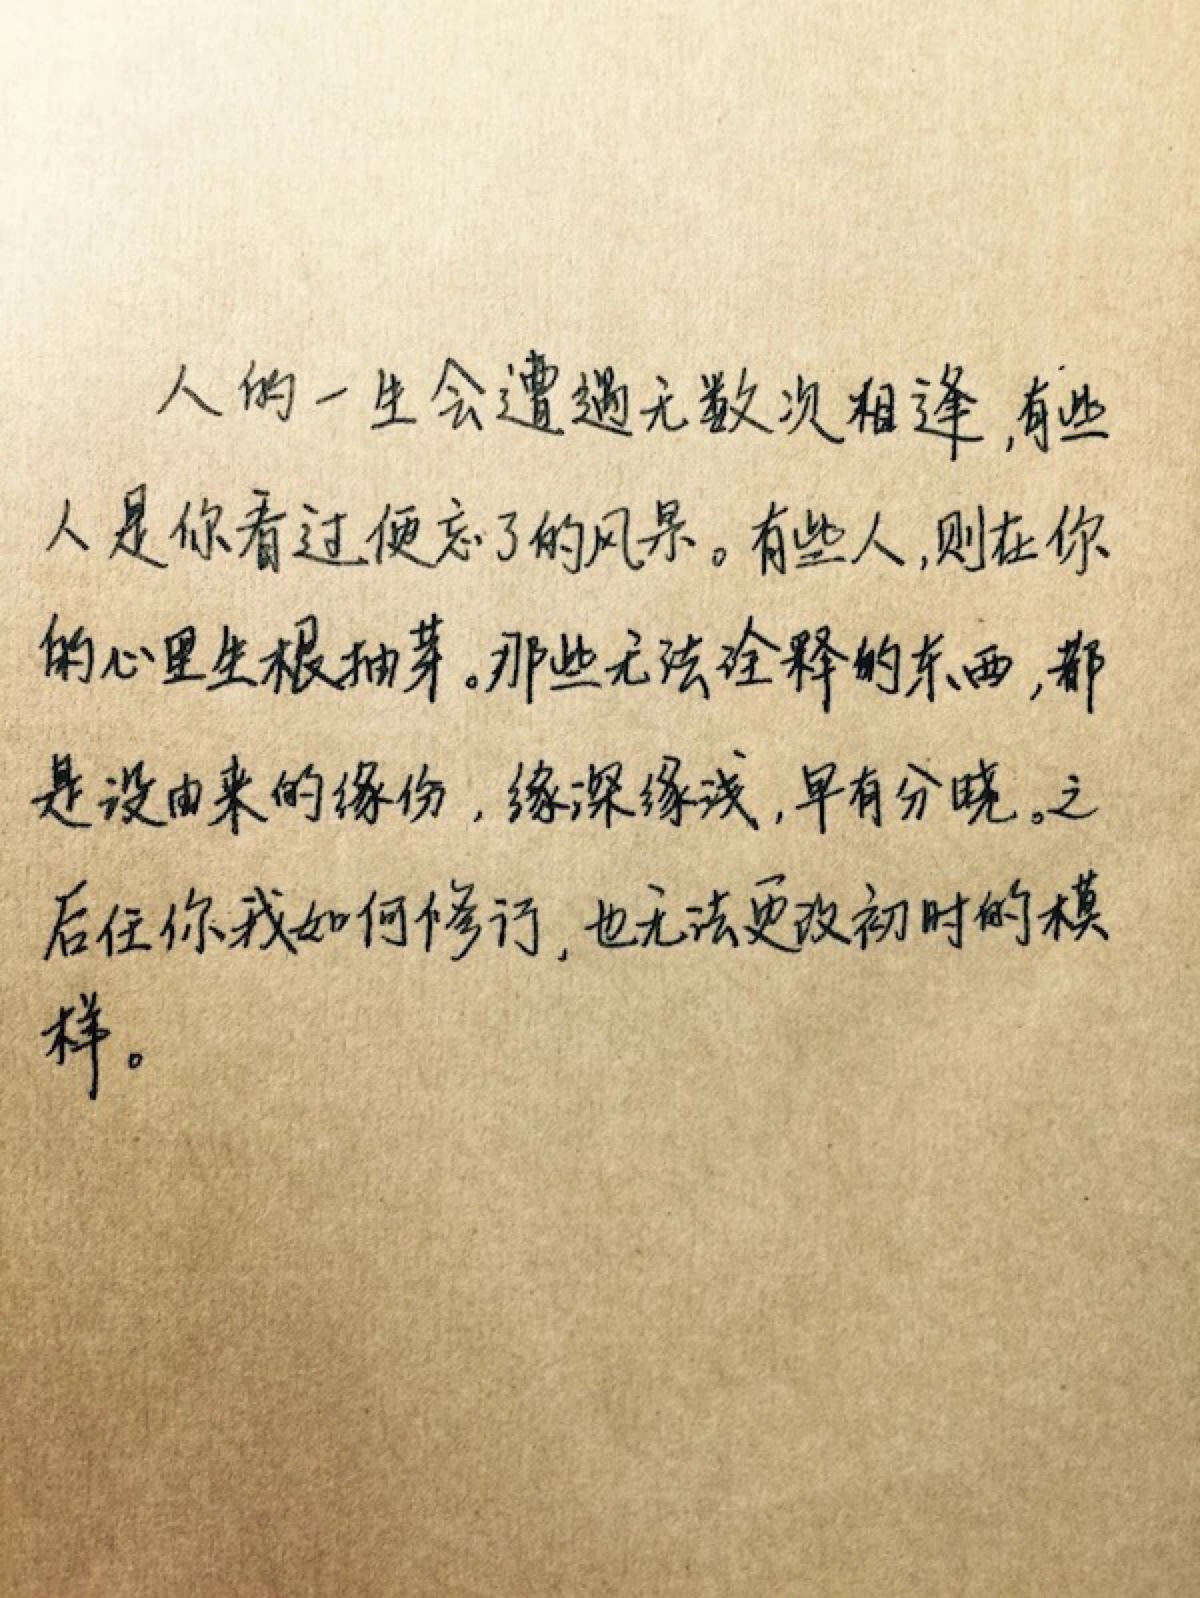 人的一生会遭遇无数次相逢,有些
人是你看过便忘了的风景。有些人,则在你
的心里生根抽芽。那些无法诠释的东西,都
是没由来的缘份,缘深缘浅,早有分晓。之
后任你我如何修行,也无法更改初时的模
样。